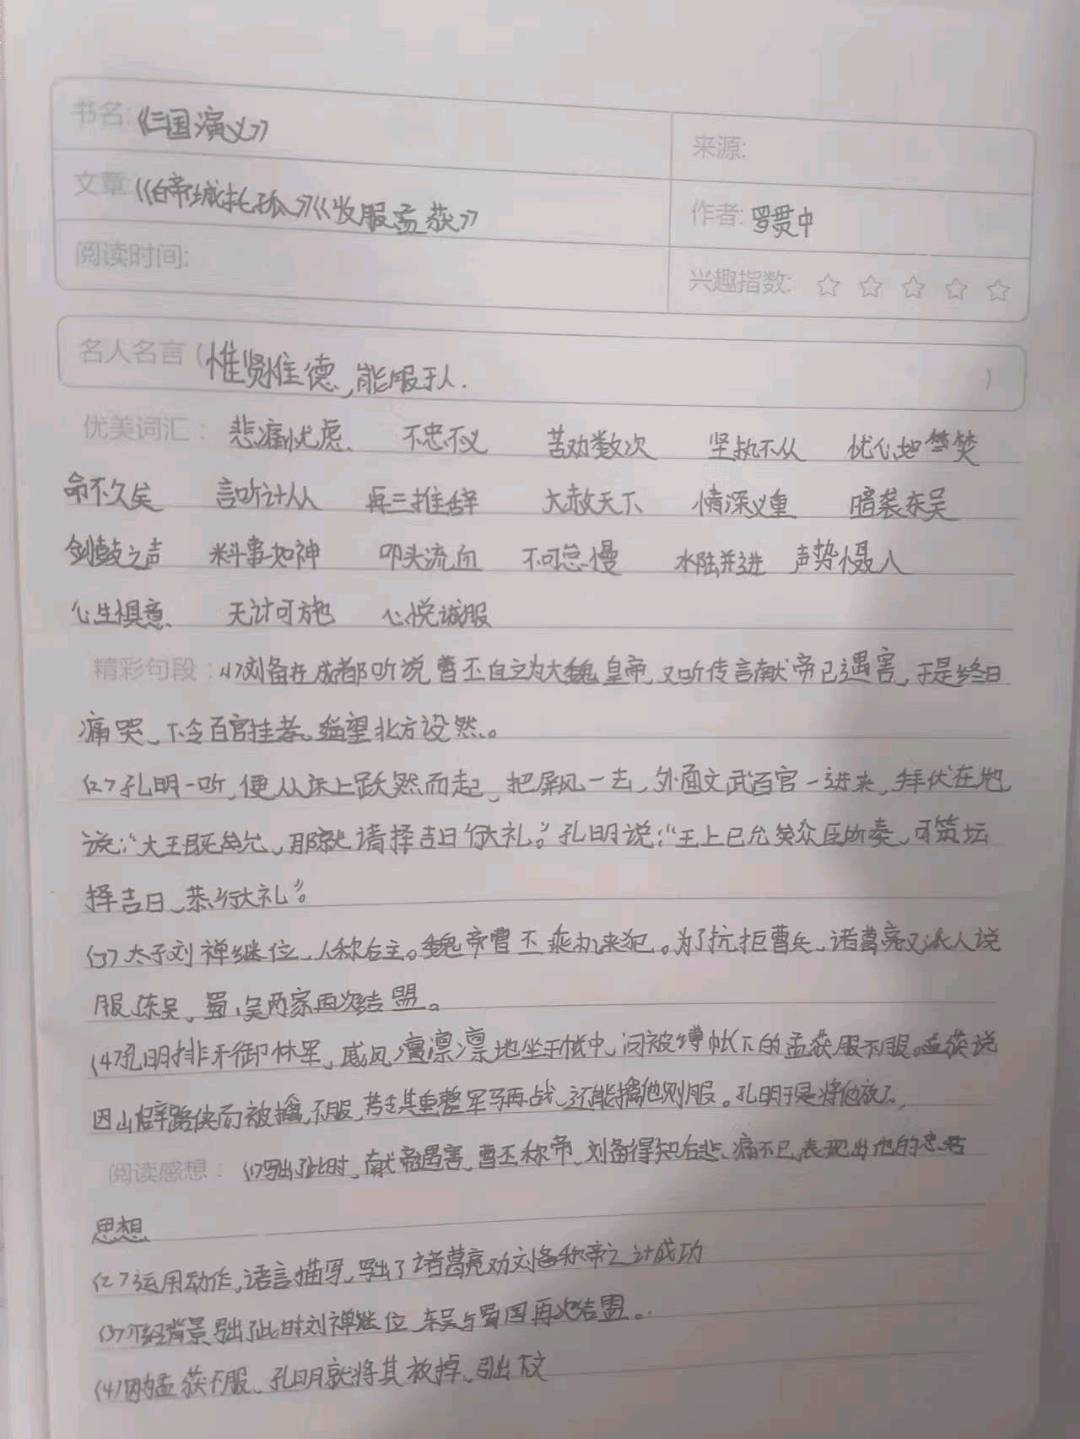 书名:《三国演义》
来源:
文章:《白帝城托孤》《收服孟获》
作者:罗贯中
阅读时间:
兴趣指数: ☆ ☆ ☆ ☆ ☆
名人名言(惟贤惟德、能服于人. )
优美词汇: 悲痛忧虑、 不忠不义 苦劝数次 坚执不从 忧心如焚
命不久矣 言听计从 再三推辞 大赦天下 情深义重 暗袭东吴
剑鼓之声 料事如神 叩头流血 不可怠慢 水陆并进 声势慑人
心生惧意、 无计可施 心悦诚服
精彩句段:(1)刘备在成都听说曹丕自立为大魏皇帝,又听传言献帝已遇害,于是终日
痛哭、下令百官挂孝、遥望北方设祭、。
(2)孔明一听,便从床上跃然而起、把屏风一去,外面文武百官一进来,拜伏在地
说:“大王既然允、那就请择吉日行大礼。”孔明说:“王上已允美众臣所奏,可筑坛
择吉日、恭行大礼”。
(3)太子刘禅继位、人称后主。魏帝曹丕乘机来犯。为了抗拒曹兵、诸葛亮又派人说
服东吴、蜀、吴两家再次结盟。
(4)孔明排开御林军,威风凛凛地坐于帐中,问被缚帐下的孟获服不服。孟获说
因山僻路侠而被擒,不服,若其重整军马再战、还能擒他则服。孔明于是将他放了,
阅读感想: (1)写出了此时,献帝遇害,曹丕称帝、刘备得知后悲、痛不已,表现出他的忠君
思想
(2)运用动作,语言描写,写出了诸葛亮劝刘备称帝之计成功
(3)介绍背景写出了此时刘禅继位,东吴与蜀国再次结盟。
(4)因为孟获不服、孔明就将其放掉、引出下文